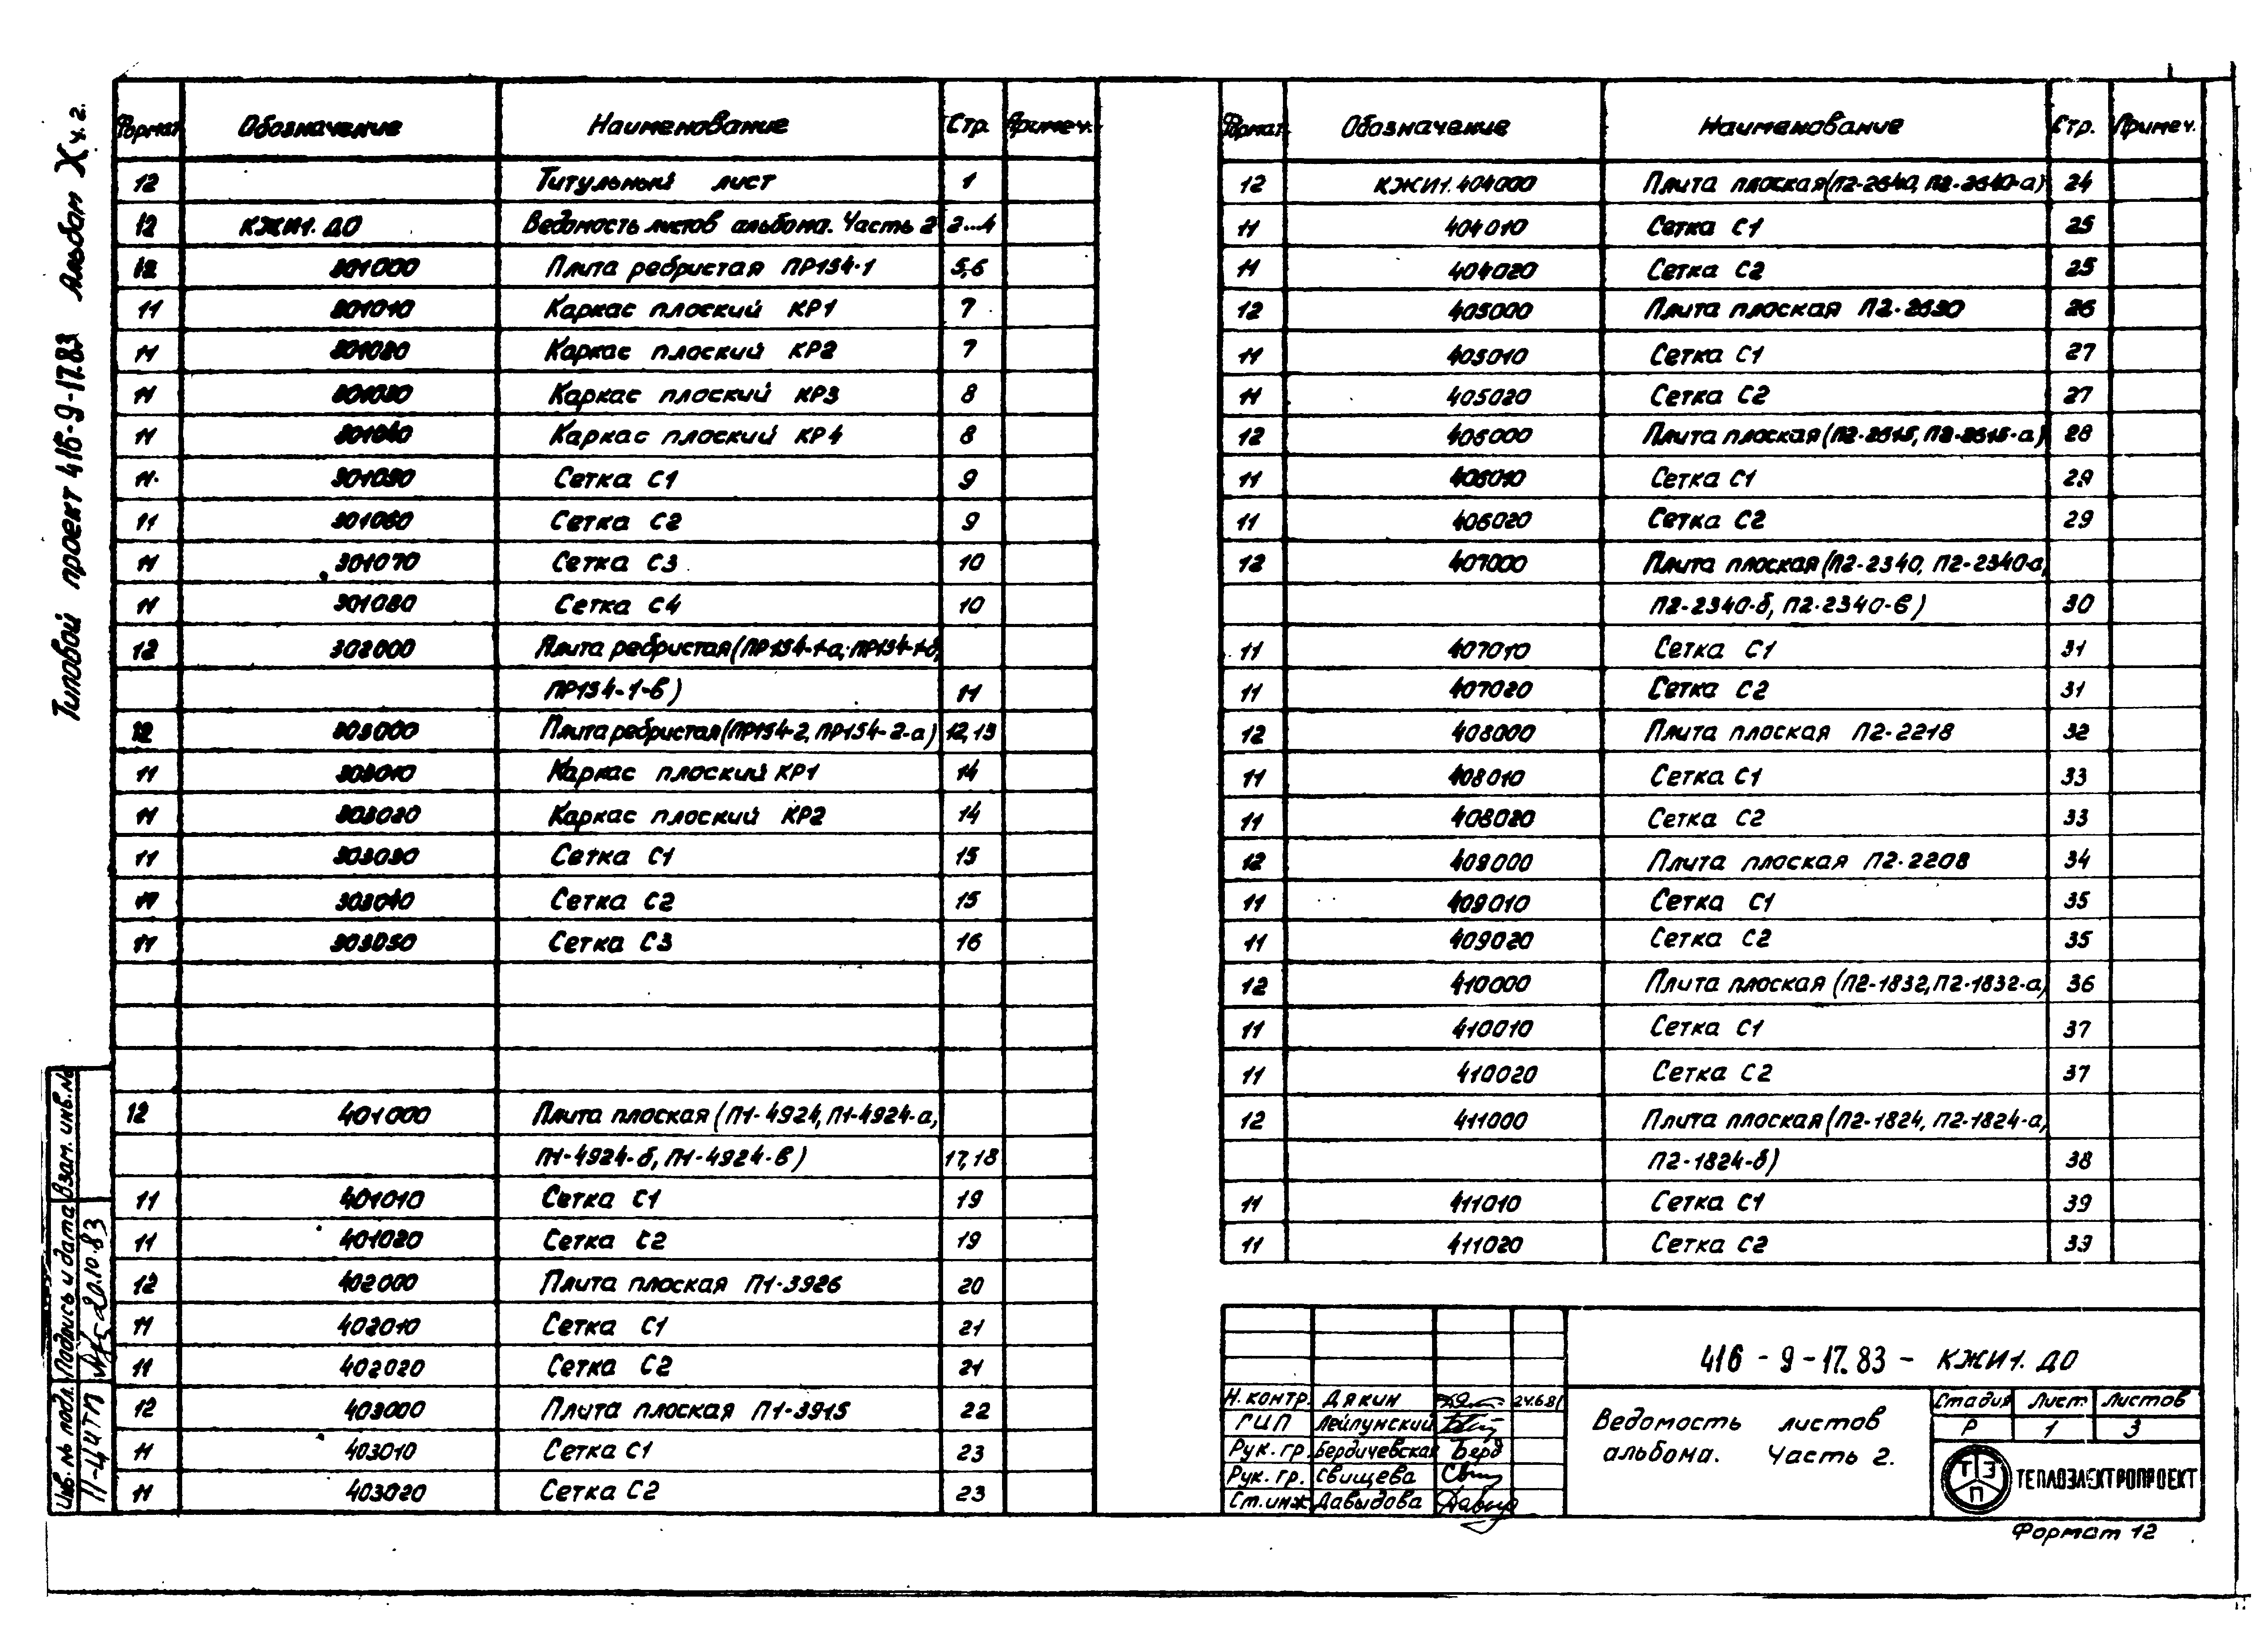 Типовой проект 416-9-17.83 Альбом X ч. 2.
Формат Обозначение Наименование Стр. Примеч.
12 Титульный лист 1
12 КЖИ1. ДО Ведомость листов альбома. Часть 2 2...4
12 301000 Плита ребристая ПР154-1 5,6
11 301010 Каркас плоский КР1 7
11 301020 Каркас плоский КР2 7
11 301030 Каркас плоский КР3 8
11 301040 Каркас плоский КР4 8
11 301050 Сетка С1 9
11 301060 Сетка С2 9
11 301070 Сетка С3 10
11 301080 Сетка С4 10
12 302000 Плита ребристая (ПР154-1-а, ПР154-1-б,
ПР154-1-в) 11
12 303000 Плита ребристая (ПР154-2, ПР154-2-а) 12,13
11 303010 Каркас плоский КР1 14
11 303020 Каркас плоский КР2 14
11 303030 Сетка С1 15
11 303040 Сетка С2 15
11 303050 Сетка С3 16
12 401000 Плита плоская (П1-4924, П1-4924-а,
П1-4924-б, П1-4924-в) 17,18
11 401010 Сетка С1 19
11 401020 Сетка С2 19
12 402000 Плита плоская П1-3926 20
11 402010 Сетка С1 21
11 402020 Сетка С2 21
12 403000 Плита плоская П1-3915 22
11 403010 Сетка С1 23
11 403020 Сетка С2 23
Формат Обозначение Наименование Стр. Примеч.
12 КЖИ1.404000 Плита плоская (П2-2640, П2-2640-а) 24
11 404010 Сетка С1 25
11 404020 Сетка С2 25
12 405000 Плита плоская П2-2630 26
11 405010 Сетка С1 27
11 405020 Сетка С2 27
12 406000 Плита плоская (П2-2615, П2-2615-а) 28
11 406010 Сетка С1 29
11 406020 Сетка С2 29
12 407000 Плита плоская (П2-2340, П2-2340-а,
П2-2340-б, П2-2340-в) 30
11 407010 Сетка С1 31
11 407020 Сетка С2 31
12 408000 Плита плоская П2-2218 32
11 408010 Сетка С1 33
11 408020 Сетка С2 33
12 409000 Плита плоская П2-2208 34
11 409010 Сетка С1 35
11 409020 Сетка С2 35
12 410000 Плита плоская (П2-1832, П2-1832-а) 36
11 410010 Сетка С1 37
11 410020 Сетка С2 37
12 411000 Плита плоская (П2-1824, П2-1824-а,
П2-1824-б) 38
11 411010 Сетка С1 39
11 411020 Сетка С2 39
416-9-17.83- КЖИ1. ДО
Н. контр. Дякин 24.6.81
ГИП Лейпунский
Рук. гр. Бердичевская Берд
Рук. гр. Свищева
Ст. инж. Давыдова
Ведомость листов
альбома. Часть 2.
Стадия Лист Листов
Р 1 3
ТЭП
ТЕПЛОЭЛЕКТРОПРОЕКТ
Формат 12
Инв. № подл. Подпись и дата Взам. инв. №
П-ЦИТП 20.10.83